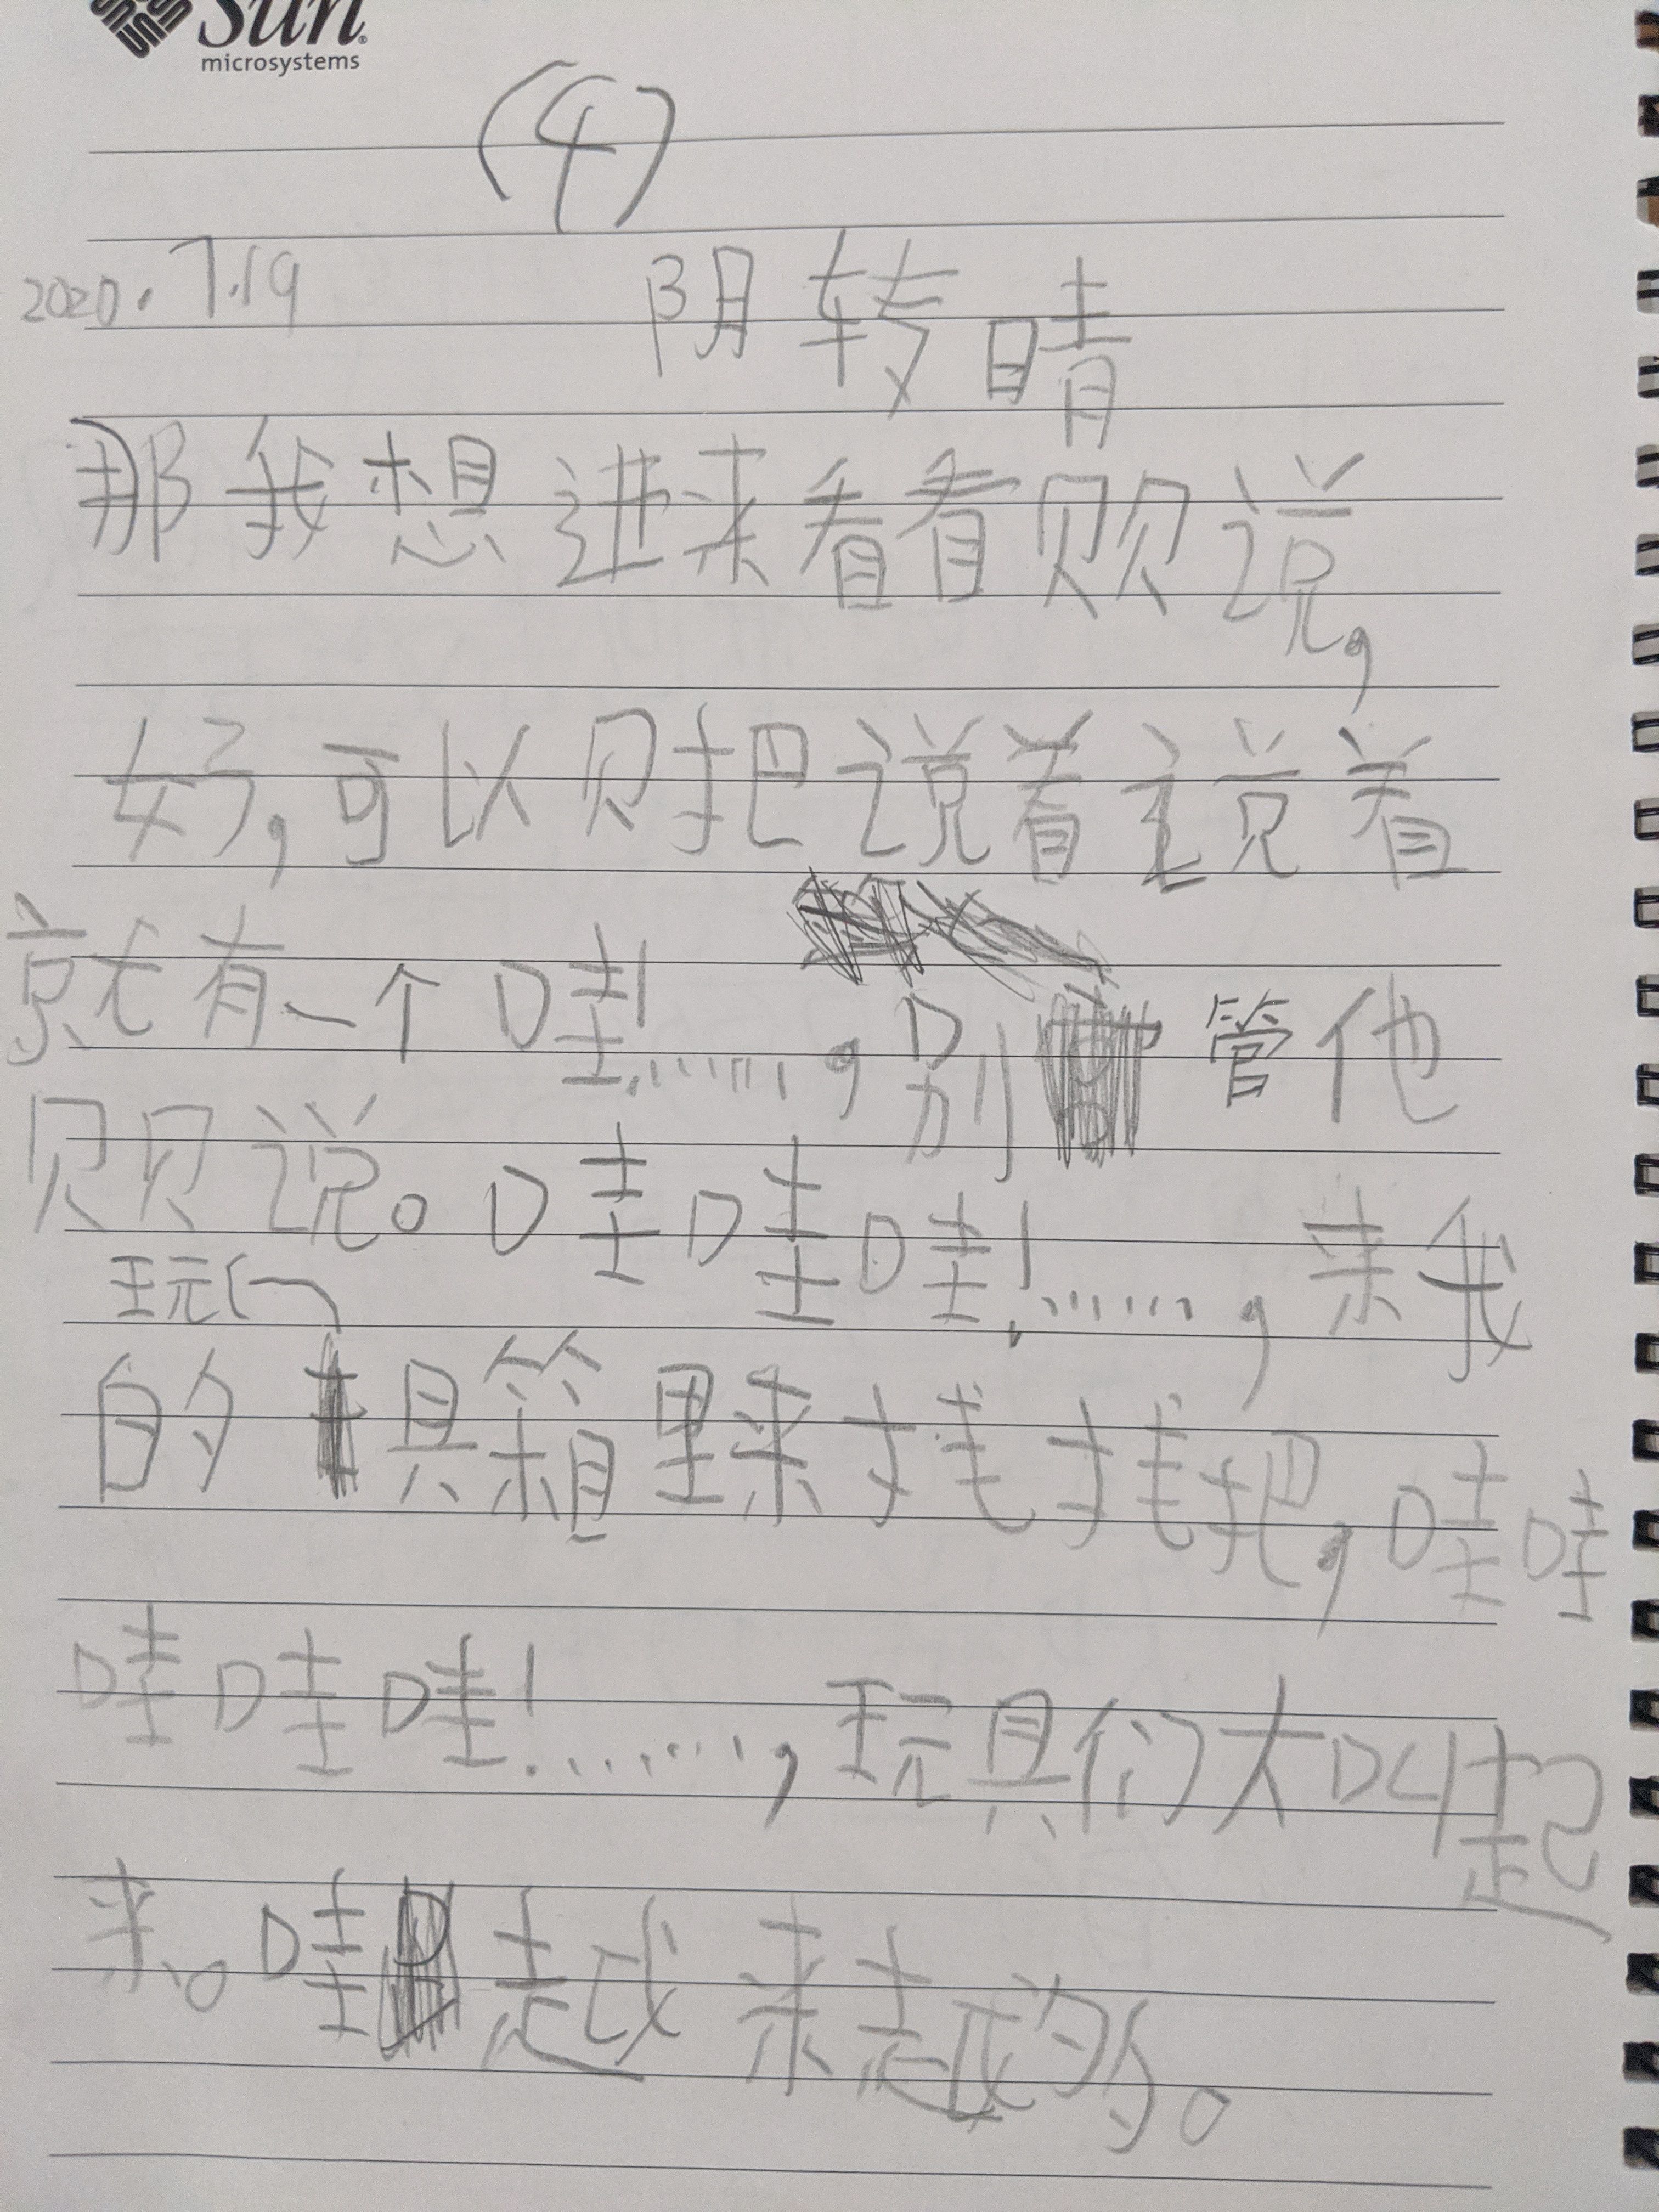 Sun
microsystems
(4)
2020.7.19 阴转晴
那我想进来看看贝贝说，
好，可以贝把说着说着
就有一个哇！……，别管他
贝贝说。哇哇哇！……，来我
玩
的具箱里来找找把，哇哇
哇哇哇！……，玩具们大叫起
来。哇越来越多。